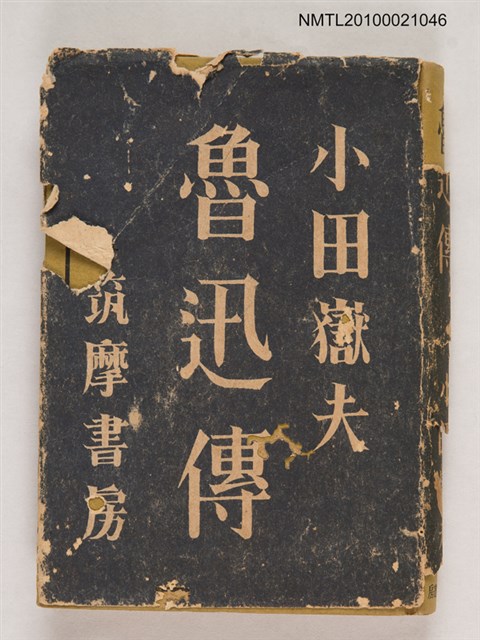 NMTL20100021046
小田嶽夫
魯迅傳
筑摩書房